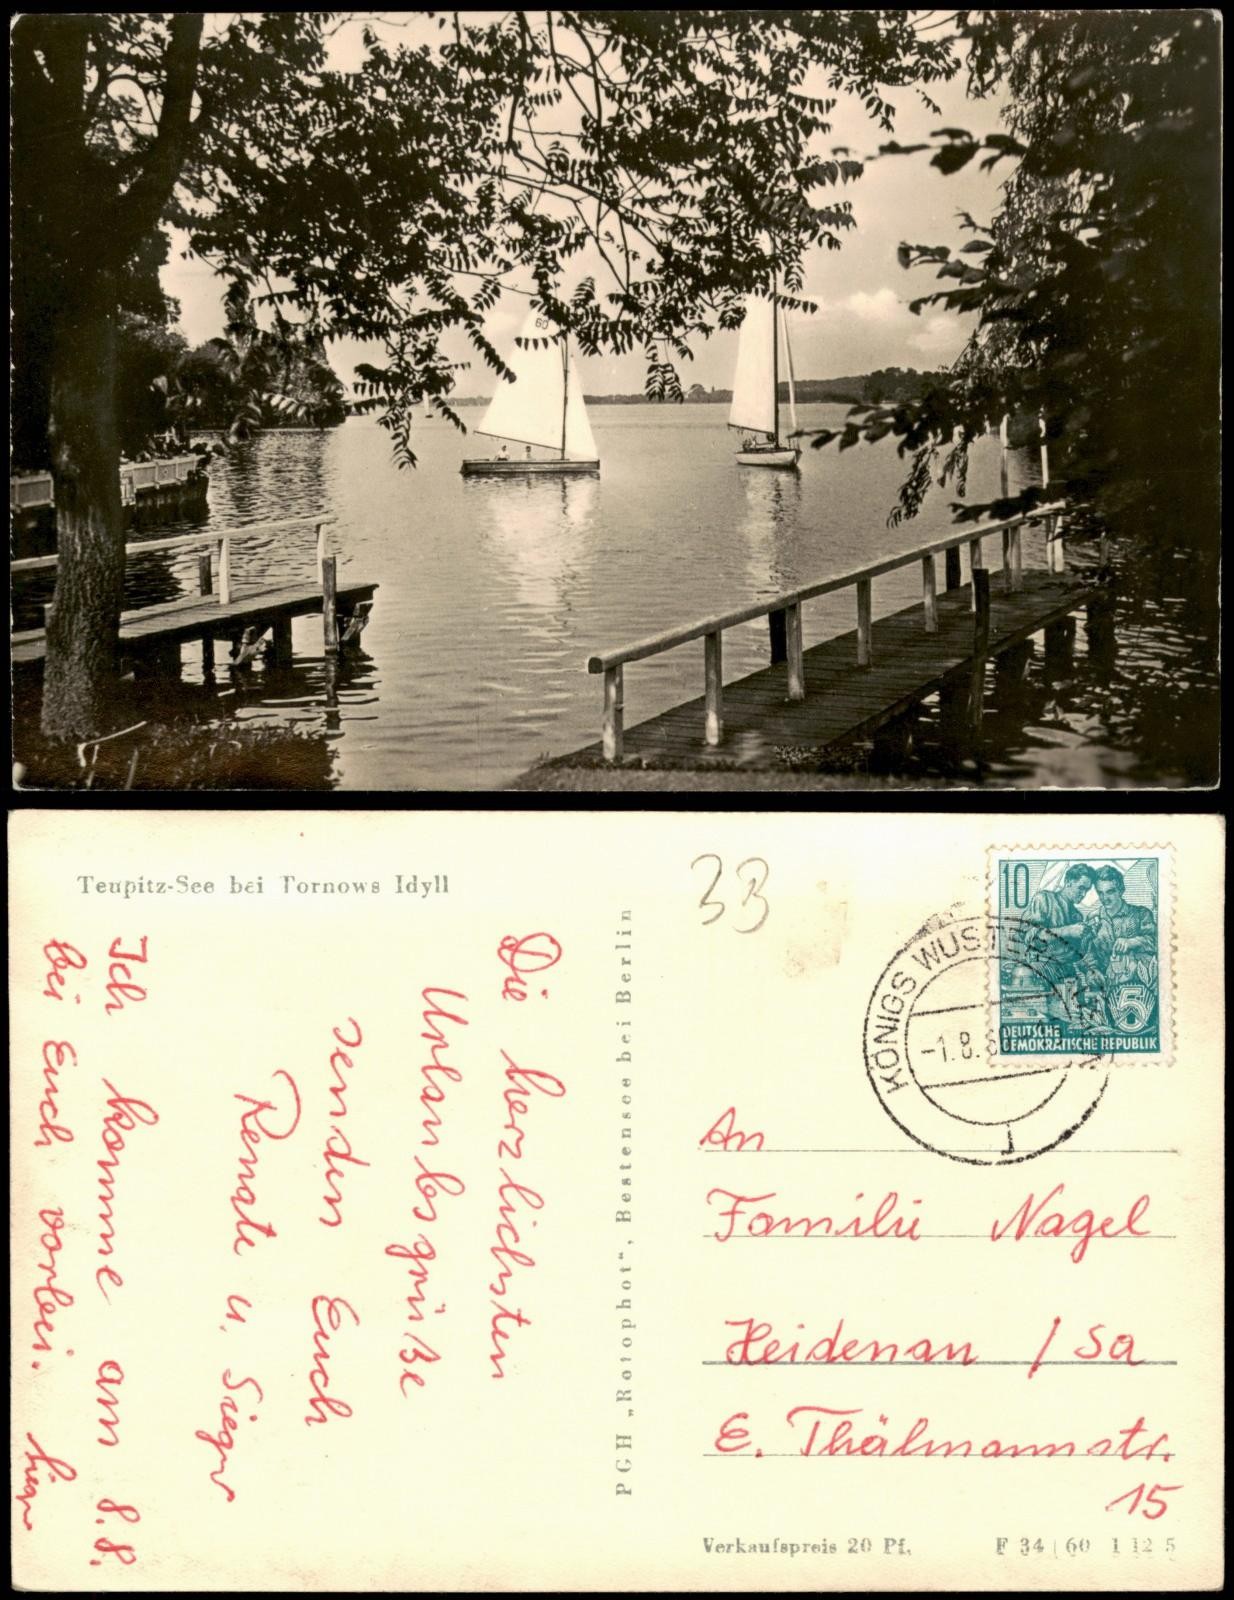 60
Teupitz-See bei Tornows Idyll
Die herzlichsten
Urlaubsgrüße
senden Euch
Renate u. Sieger
Ich komme am 8.8.
bei Euch vorbei.
PGH „Rotophot“, Bestensee bei Berlin
33
10
DEUTSCHE
DEMOKRATISCHE REPUBLIK
5
KÖNIGS WUSTER
-1.8.6
r
An
Familie Nagel
Heidenau / Sa
E. Thälmannstr.
15
Verkaufspreis 20 Pf.
F 34 | 60 1 12 5